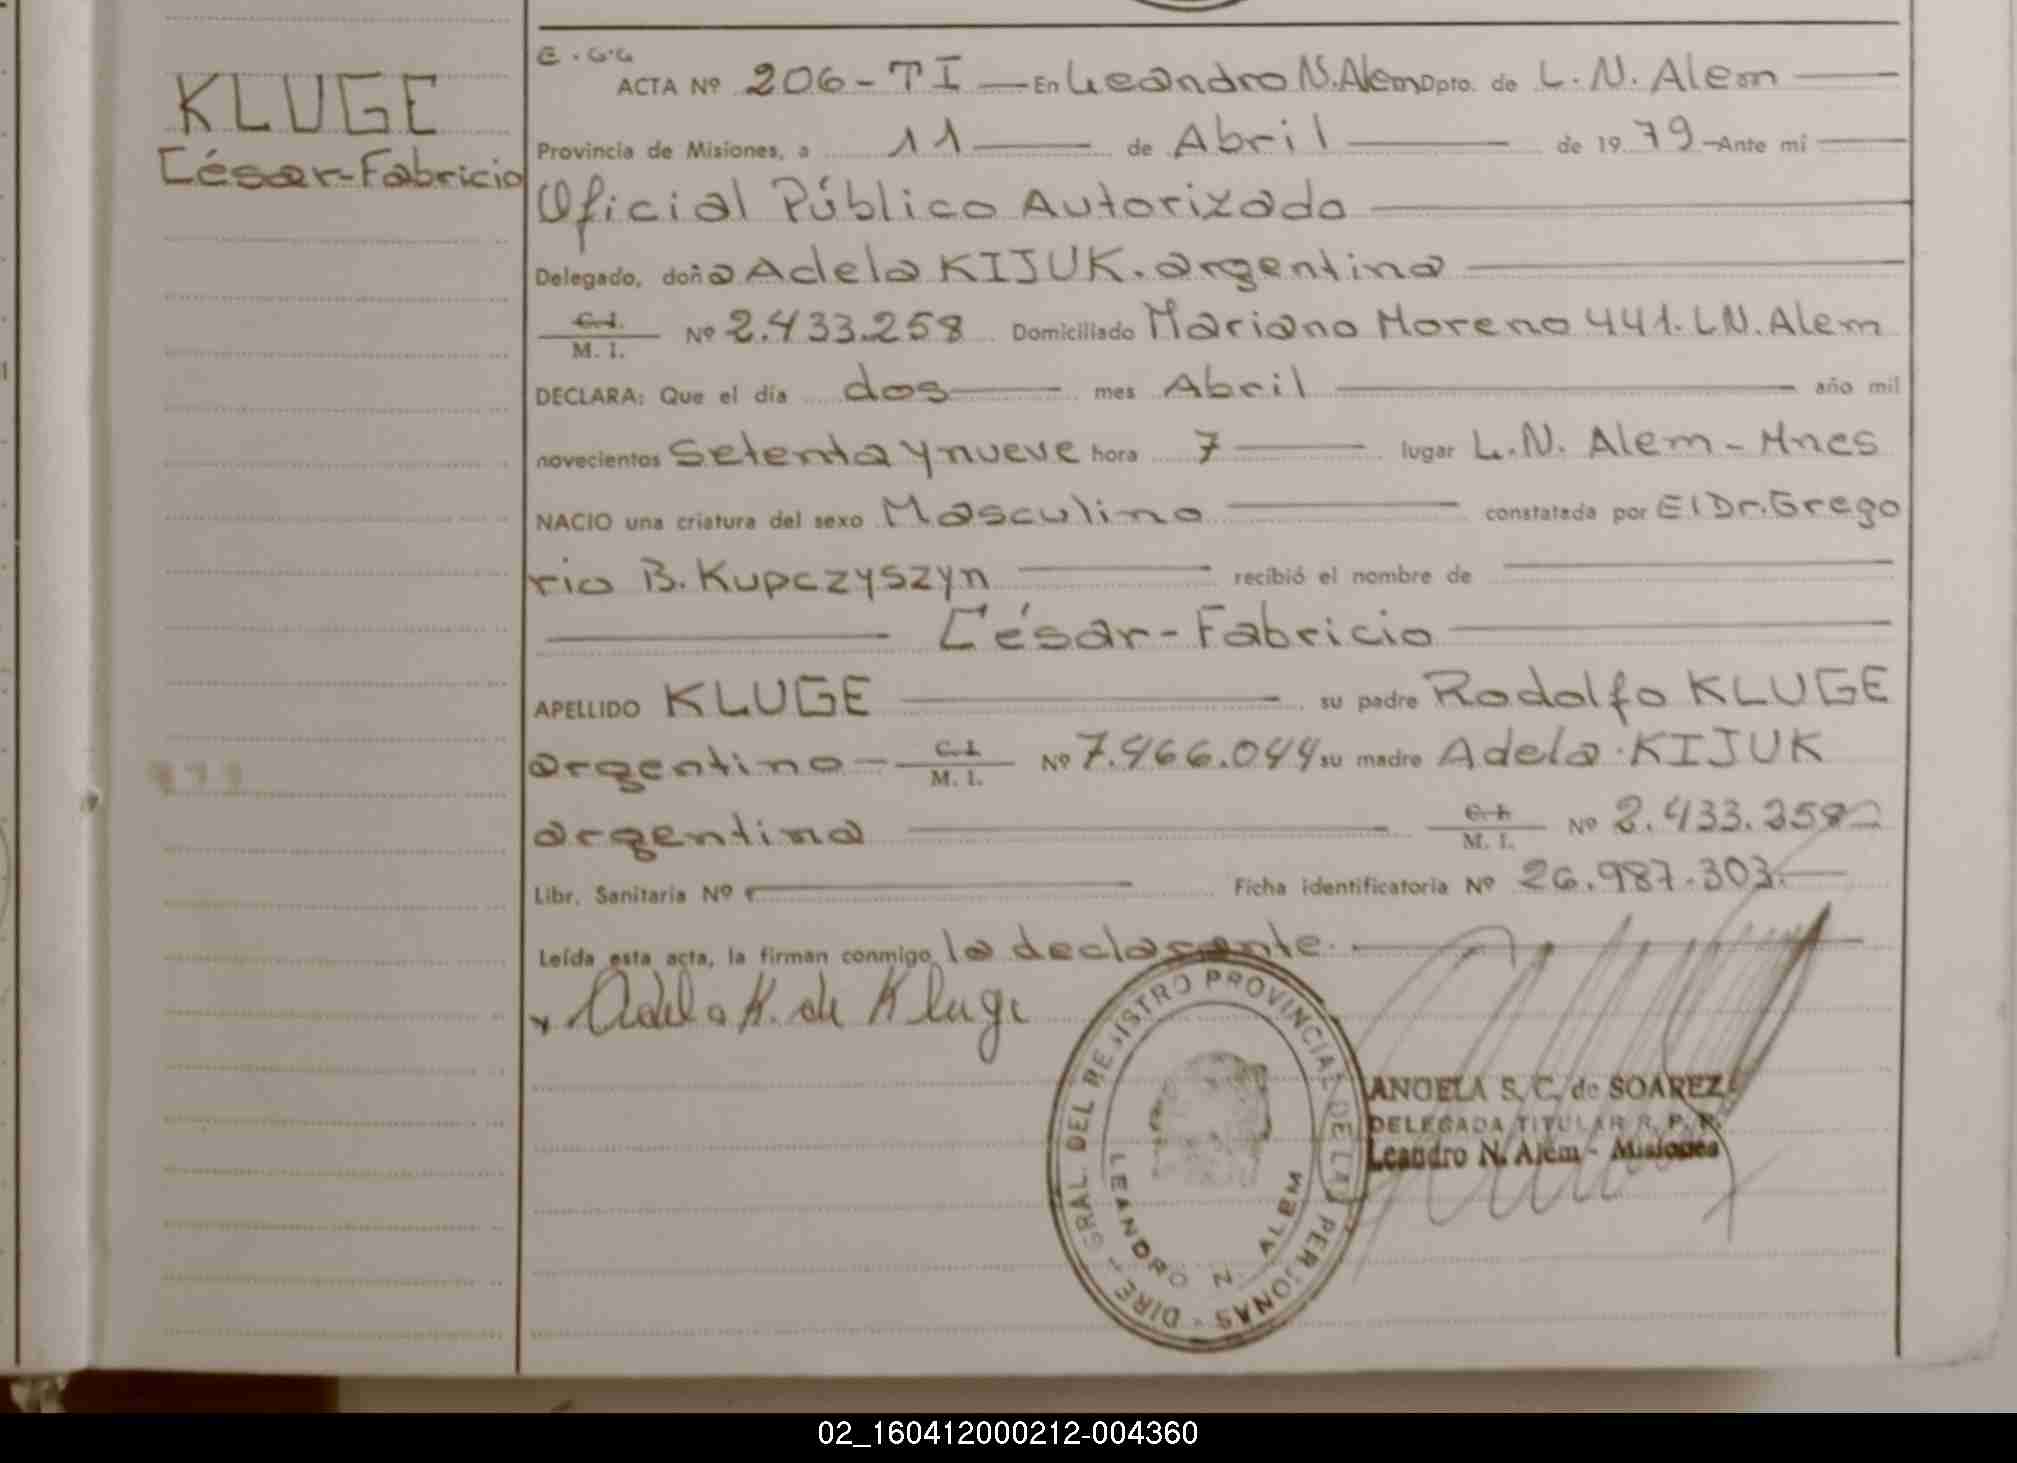 KLUGE
César-Fabricio
E.G.G
ACTA Nº 206-TI — En Leandro N. Alem Dpto. de L. N. Alem
Provincia de Misiones, a 11 de Abril de 1979 -Ante mi
Oficial Público Autorizado
Delegado, doña Adela KIJUK. argentina
C.I. M. I. Nº 2.433.258 Domiciliado Mariano Moreno 441. L.N. Alem
DECLARA: Que el día dos mes Abril año mil
novecientos Setenta y nueve hora 7 lugar L. N. Alem - Mnes
NACIO una criatura del sexo Masculino constatada por El Dr. Grego
rio B. Kupczyszyn recibió el nombre de
César-Fabricio
APELLIDO KLUGE su padre Rodolfo KLUGE
argentino - C.I. M. I. Nº 7.466.044 su madre Adela KIJUK
argentina C.I. M. I. Nº 2.433.258
Libr. Sanitaria Nº Ficha identificatoria Nº 26.987.303.-
Leída esta acta, la firman conmigo la declarante.
Adela K. de Kluge
DIRE. GRAL. DEL REGISTRO PROVINCIAL DE LAS PERSONAS
LEANDRO N. ALEM
ANGELA S. C. de SOAREZ
DELEGADA TITULAR R. P. P.
Leandro N. Alem - Misiones
02_160412000212-004360